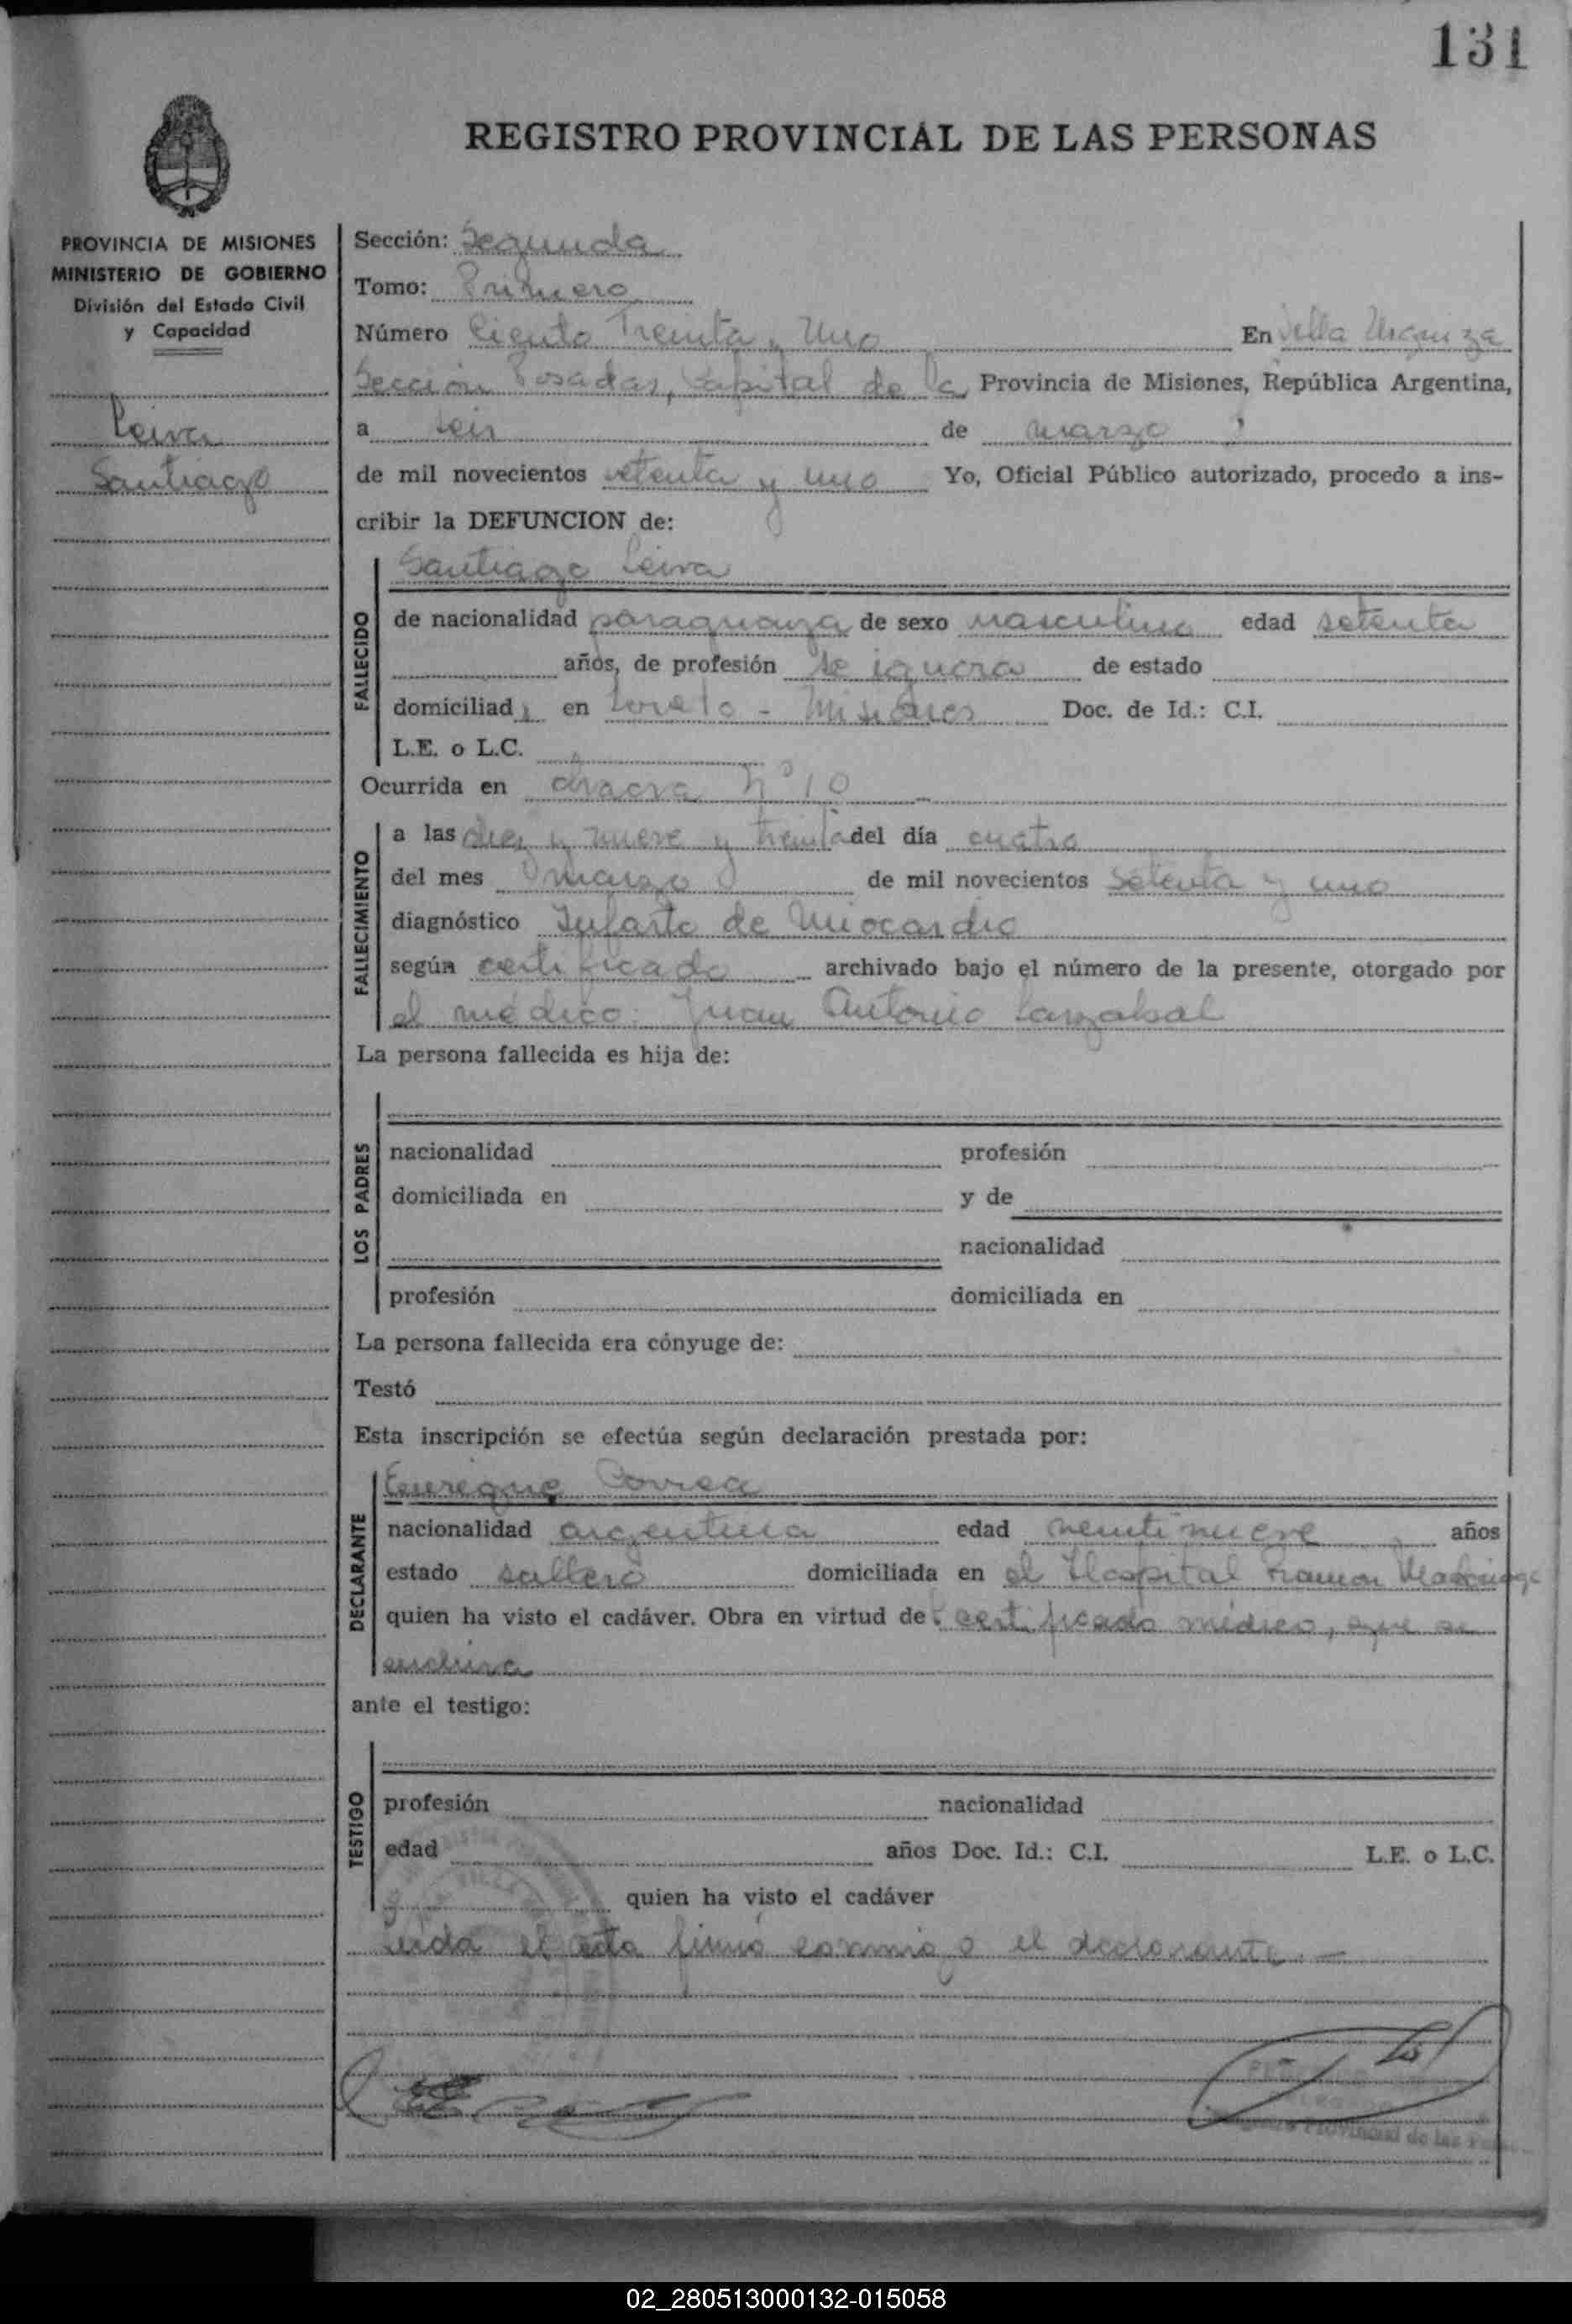 131
REGISTRO PROVINCIAL DE LAS PERSONAS
PROVINCIA DE MISIONES
MINISTERIO DE GOBIERNO
División del Estado Civil
y Capacidad
Leiva
Santiago
Sección: Segunda
Tomo: Primero
Número Ciento Treinta y Uno En Villa Urquiza
Sección Posadas, Capital de la Provincia de Misiones, República Argentina,
a seis de marzo
de mil novecientos setenta y uno Yo, Oficial Público autorizado, procedo a ins-
cribir la DEFUNCION de:
FALLECIDO
Santiago Leiva
de nacionalidad paraguaya de sexo masculino edad setenta
años, de profesión se ignora de estado
domiciliad en Loreto - Misiones Doc. de Id.: C.I.
L.E. o L.C.
Ocurrida en chacra Nº 10
FALLECIMIENTO
a las diez y nueve y treinta del día cuatro
del mes marzo de mil novecientos setenta y uno
diagnóstico Infarto de Miocardio
según certificado archivado bajo el número de la presente, otorgado por
el médico: Juan Antonio
La persona fallecida es hija de:
LOS PADRES
nacionalidad profesión
domiciliada en y de
nacionalidad
profesión domiciliada en
La persona fallecida era cónyuge de:
Testó
Esta inscripción se efectúa según declaración prestada por:
DECLARANTE
Enrique Correa
nacionalidad argentina edad veintinueve años
estado soltero domiciliada en el Hospital Ramon
quien ha visto el cadáver. Obra en virtud de: certificado médico, que se
archiva
ante el testigo:
TESTIGO
profesión nacionalidad
edad años Doc. Id.: C.I. L.E. o L.C.
quien ha visto el cadáver
Leida el acta firmó conmigo el declarante. —
Provincial de las
02_280513000132-015058